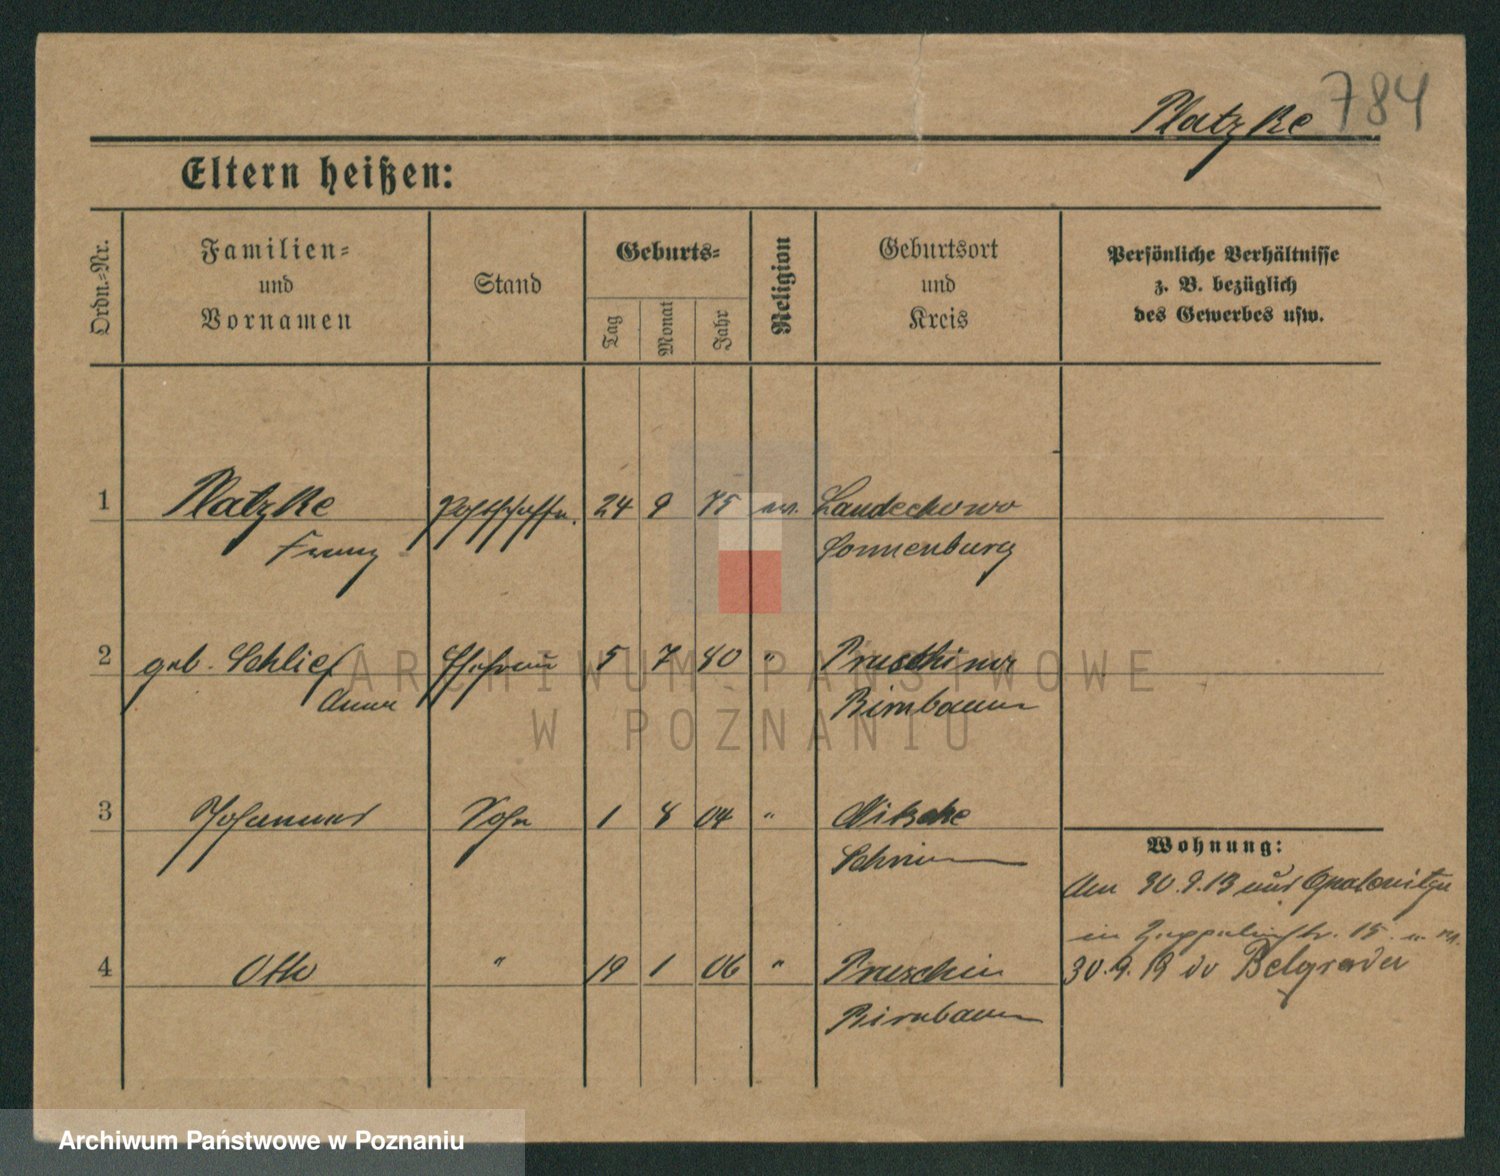 Platzke 784
Eltern heißen:
Ordn.-Nr.
Familien-
und
Vornamen
Stand
Geburts-
Tag
Monat
Jahr
Religion
Geburtsort
und
Kreis
Persönliche Verhältnisse
z. B. bezüglich
des Gewerbes usw.
1 Platzke 24 9 75 ev.
Franz Sonnenburg
2 geb. Schlief Ehefrau 5 7 80 "
Anna Birnbaum
3 Johannes Sohn 1 8 04 "
Schrimm
4 Otto " 19 1 06 "
Birnbaum
Wohnung:
30.9.13 aus
in 15
30.9.19 Belgrader
ARCHIWUM PAŃSTWOWE
W POZNANIU
Archiwum Państwowe w Poznaniu